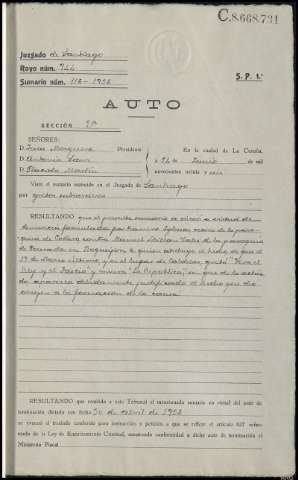 C.8.668.731
Juzgado de Santiago
Royo núm. 744
Sumario núm. 112-1932
S. P. 1ª
AUTO
SECCION 2ª
SEÑORES:
D. Mosquera Presidente
D. Antonio
D. Martín
En la ciudad de La Coruña,
a 24 de Junio de mil
novecientos treinta y
Visto el sumario instruido en el Juzgado de Santiago
por gritos subversivos
RESULTANDO que el presente sumario se inició a virtud de
denuncia formulada por Manuel Iglesias vecino de la parro-
quia de contra Manuel de la parroquia
de en a quien atribuye el hecho de que el
19 de Marzo último, y en el lugar de gritó "Viva el
Rey y el" y muera "La República", sin que de lo actua-
do aparezca debidamente justificado el hecho que dio
origen a la formación de la causa
RESULTANDO que remitido a este Tribunal el mencionado sumario en virtud del auto de
terminación dictado con fecha 30 de abril de 1932
se evacuó el traslado conferido para instrucción y petición a que se refiere el artículo 627 refor-
mado de la Ley de Enjuiciamiento Criminal, mostrando conformidad a dicho auto de terminación el
Ministerio Fiscal